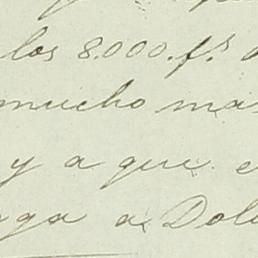 los 8.000.f.s
mucho mas
y a que e
ga a Dol